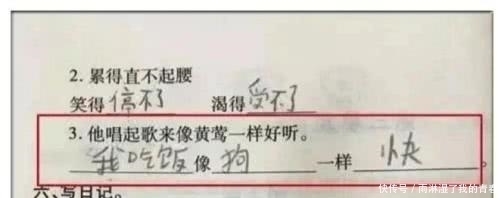 2. 累得直不起腰
笑得 停不了 渴得 受不了
3. 他唱起歌来像黄莺一样好听。
我吃饭 像 狗 一样 快 。
六、写日记。
快传号 / 雨淋湿了我的青春